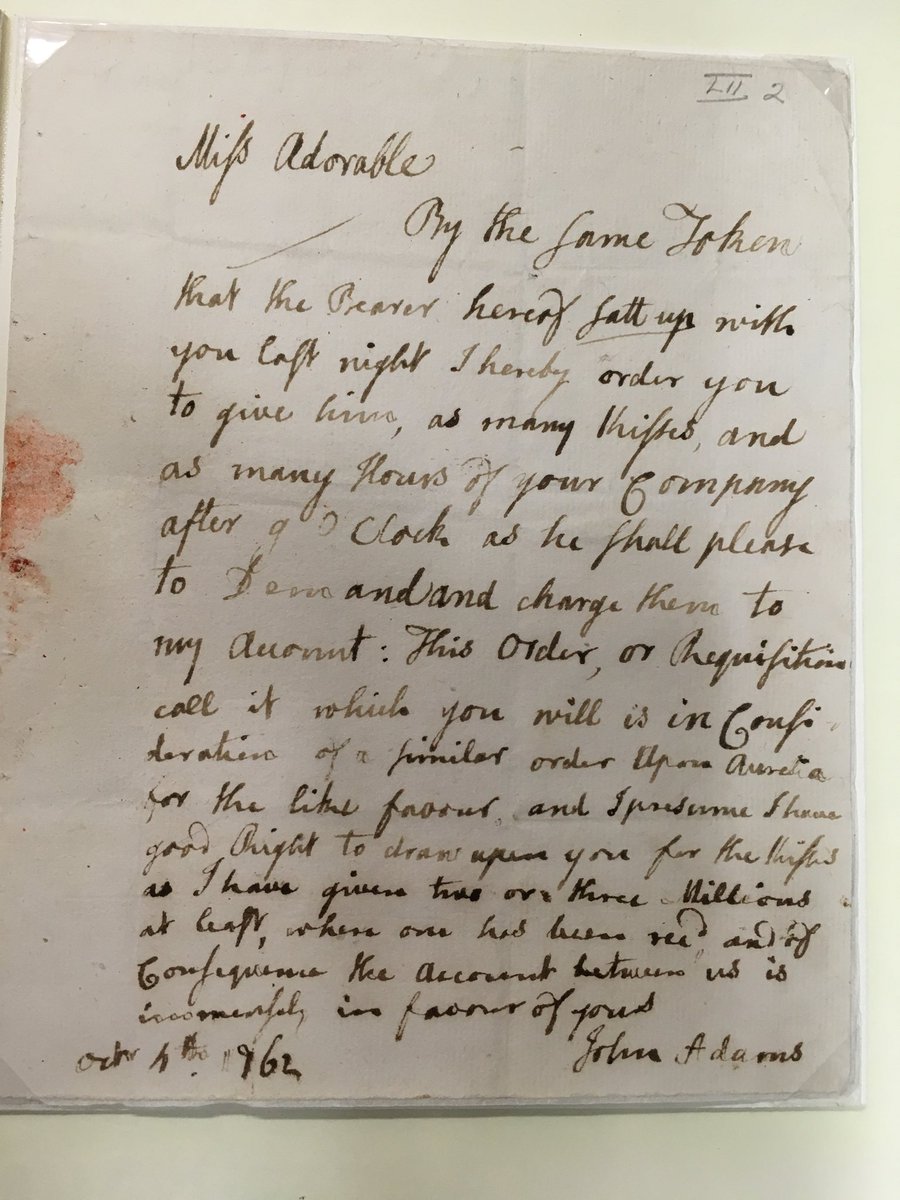 LII 2
Miſs Adorable
By the ſame Token
that the Bearer hereof ſatt up with
you laſt night I hereby order you
to give him, as many Kiſses, and
as many Hours of your Company
after 9 O Clock as he ſhall pleaſe
to Demand and charge them to
my Account: This Order, or Requiſition
call it which you will is in Conſi
deration of a ſimilar order Upon Aurelia
for the like favour, and I preſume I have
good Right to draw upon you for the Kiſses
as I have given two or three Millions
at leaſt, when one has been recd and of
Conſequence the Account between us is
immenſely in favour of yours
John Adams
Octr 4th. 1762